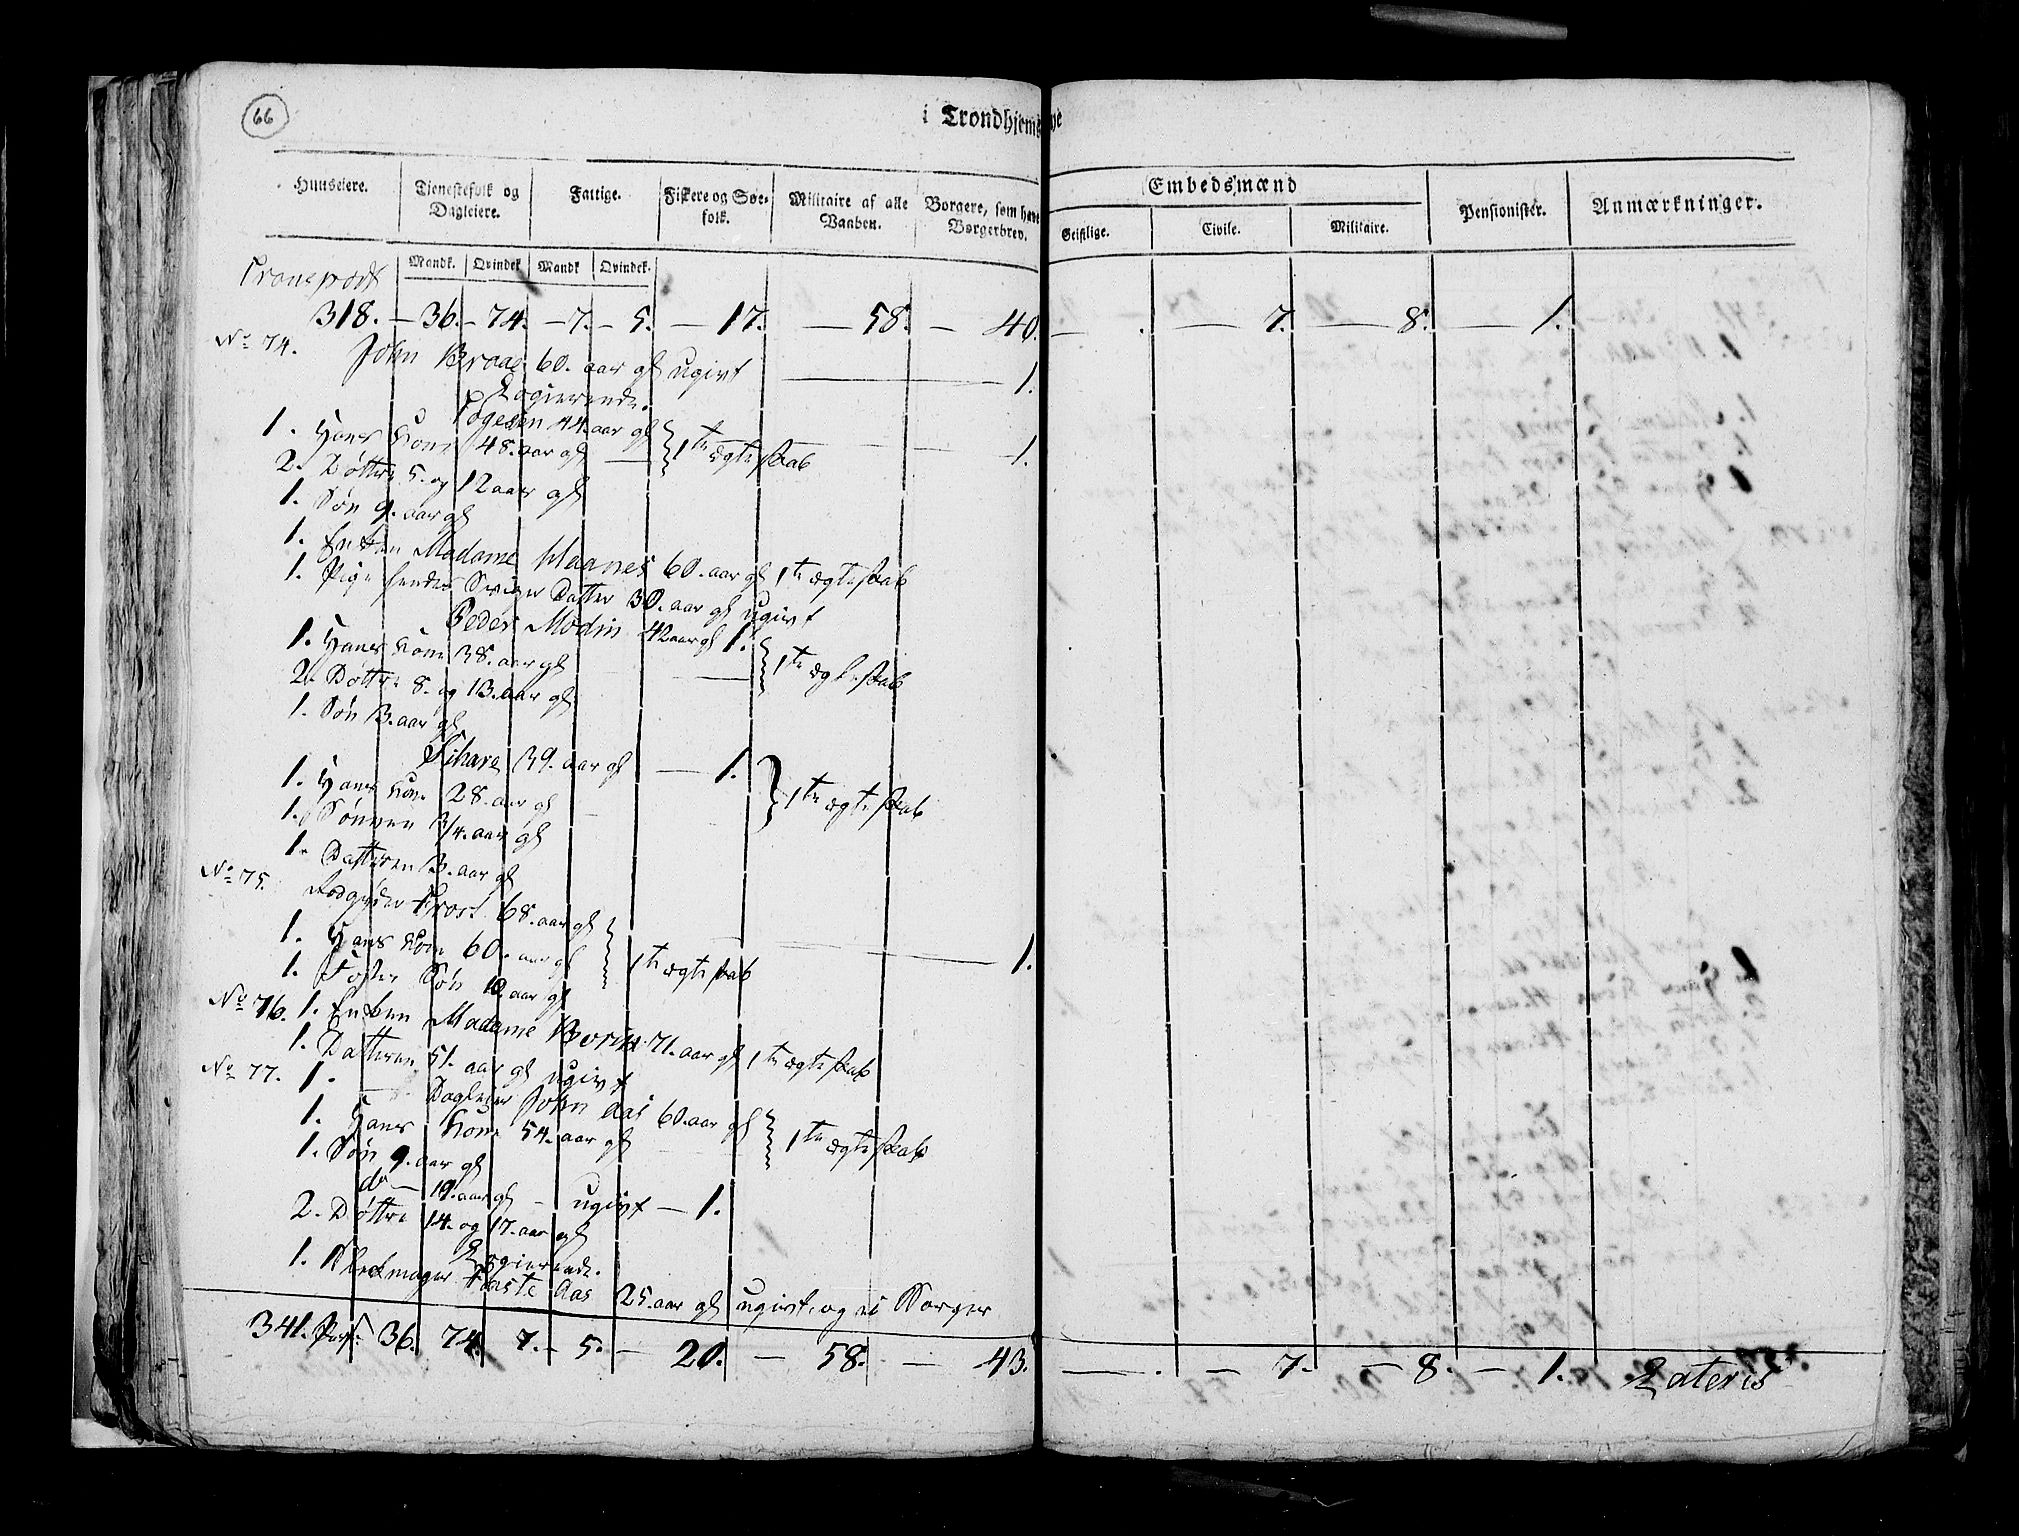 66
i Trondhjems bye
Huuseiere. Tienestefolk og Dagleiere. Fattige. Fiskere og Søefolk. Militaire af alle Vaaben. Borgere, som have Borgerbrev. Embedsmænd Pensionister. Anmærkninger.
Geistlige. Civile. Militaire.
Mandk. Qvindek. Mandk Qvindek.
Transport
318. — 36. — 74. — 7. — 5. — 17. — 58. — 40. — . — 7. — 8. — 1.
No 74. John Braae 60. aar gl ugivt — 1.
Logierende.
1. Hans Kone 48. aar gl — 1te ægteskab — 1.
44. aar gl
2. Døttre 5. og 12 aar gl
1. Søn 9. aar gl
1. Enken Madame 60. aar gl 1te ægteskab
1. Pige hendes Datter 30. aar gl ugivt
Peder Modin 42 aar gl 1.
1. Hans Kone 38. aar gl 1te ægteskab
2. Døttre 8. og 13. aar gl
1. Søn 3. aar gl
39. aar gl — 1.
1. Hans Kone 28. aar gl 1te ægteskab
1. Sønnen 3/4. aar gl
1. Datteren 3. aar gl
No 75. Frost 68. aar gl
1. Hans Kone 60. aar gl 1te ægteskab — 1.
1. Foster Søn 10. aar gl
No 76. 1. Enken Madame 71. aar gl 1te ægteskab
1. Datteren 51. aar gl ugivt
No 77. 1. Dagleier John Aas 60. aar gl
1. Hans Kone 54. aar gl 1te ægteskab
1. Søn 9. aar gl
do — 19. aar gl — ugivt — 1.
2. Døttre 14. og 17. aar gl
Logierende.
1. Aas 25. aar gl ugivt, og ei Borger
341. Pers. 36. 74. 7. — 5. — 20. — 58. — 43. — . — 7. — 8. — 1. Lateris